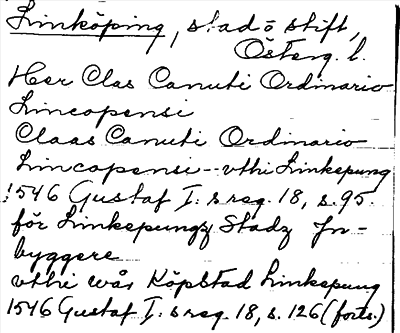 Linköping, stad o stift,
Österg. l.
Her Clas Canuti Ordinario
Lincopensi
Claas Canuti Ordinario
Lincopensi -- vthi Linkepung
1546 Gustaf I:s reg. 18, s. 95.
för Linkepungz Stadz In-
byggere
vthi wår Köpstad Linkepung
1546 Gustaf I:s reg. 18, s. 126 (forts.)